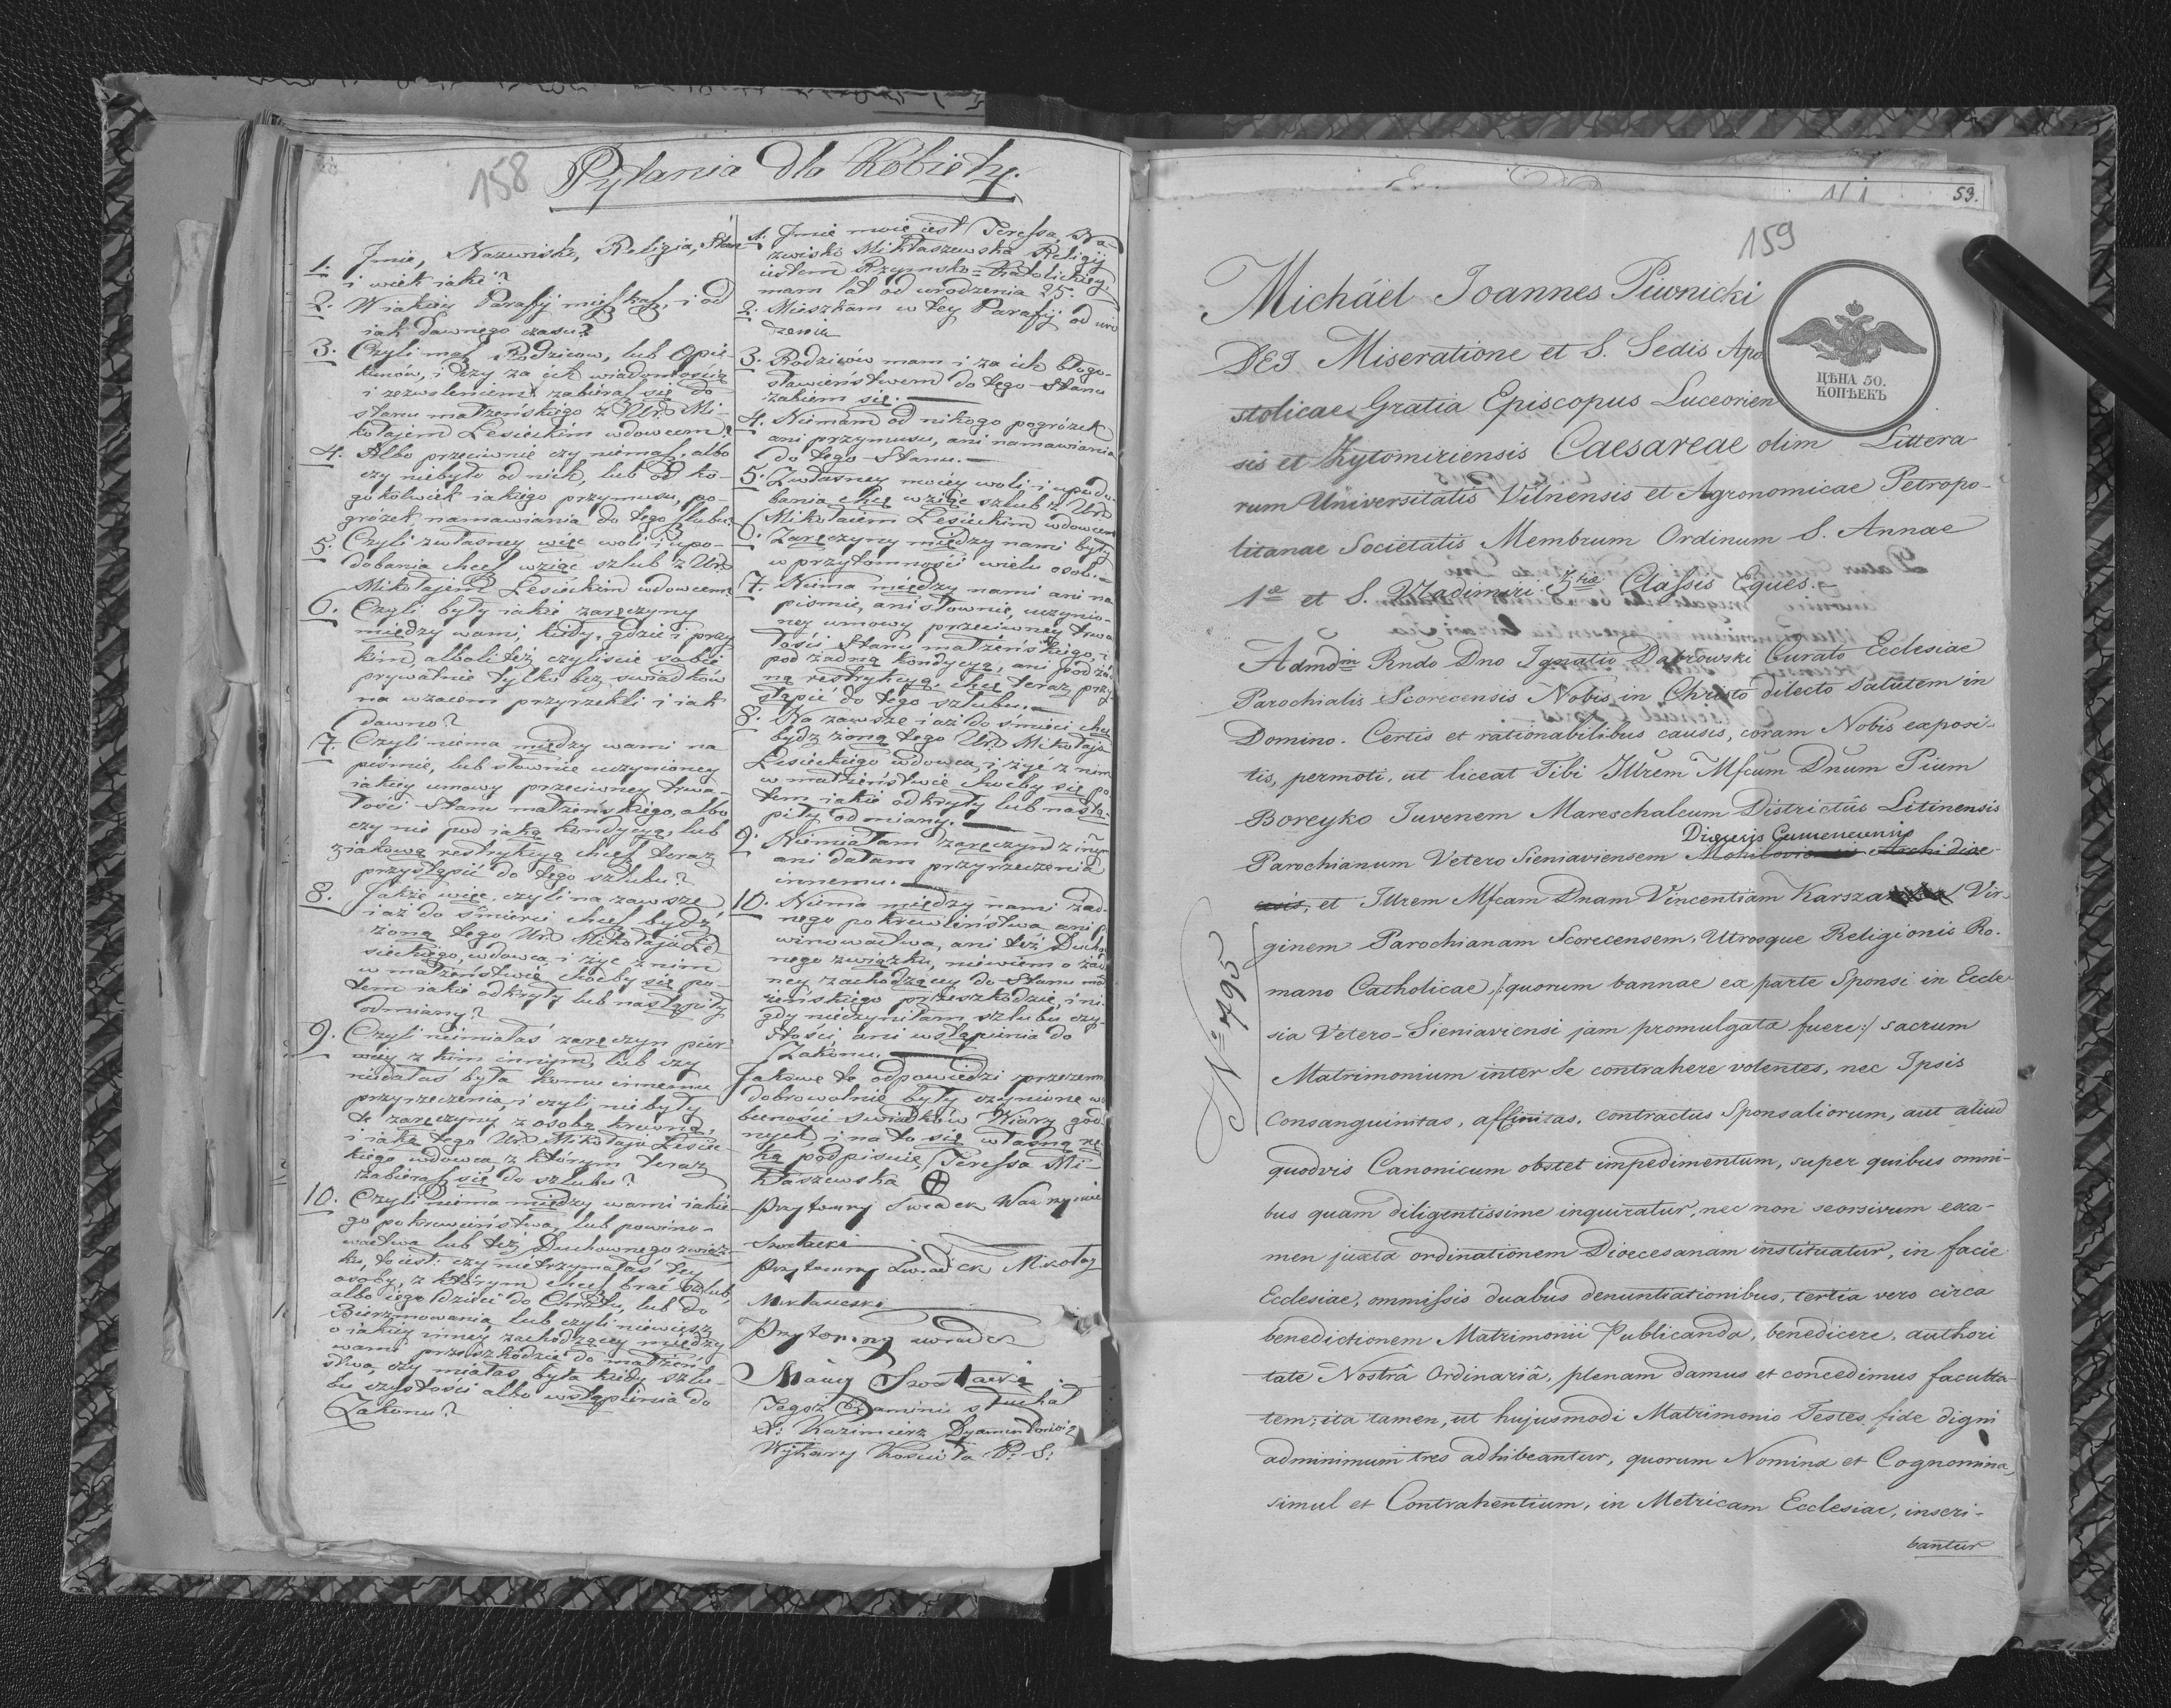 158
Pytania dla Kobiety.
Jmie, Nazwisko, Religia, Stan
1. i wiek iaki?
2. W iakiey Parafij mięszkasz, i od
iak dawnego czasu?
3. Czyli masz Rodziców, lub Opie-
kunów, i czy za ich wiadomością
i zezwoleniem zabierasz się do
stanu małżeńskiego z Uro Mi-
kołajem Lesieckim wdowcem?
4. Albo przeciwnie czy niemasz, albo
czy niebyło od nich, lub od ko-
gokolwiek iakiego przymusu, po-
gróżek, namawiania do tego szlubu?
5. Czyli zwłasney więc woli i upo-
dobania chcesz wziąć szlub z Uro
Mikołajem Lesieckim wdowcem
6. Czyli były iakie zaręczyny
między wami, kiedy, gdzie i przy
kim, albolitéż czyliście sobie
prywatnie tylko bez swiadków
na wzaiem przyrzekli i iak
dawno?
7. Czyli niema między wami na
piśmie, lub słownie uczynioney
iakiey umowy przeciwney trwa-
łości stanu małżeńskiego, albo
czy nie pod iaką kondycyą, lub
z iakową restrykcyą chcesz teraz
przystąpić do tego szlubu?
8. Jakże więc, czyli na zawsze
i aż do śmierci chcesz bydź
żoną tego Uro Mikołaja Le-
sieckiego, wdowca, i żyć z nim
w małżeństwie choćby się po-
tem iakie odkryły lub nastąpiły
odmiany?
9. Czyli niemiałaś zaręczyn pier-
wiey z kim innym, lub czy
niedałaś była komu innemu
przyrzeczenia, i czyli nie były
te zaręczyny z osobą krewną,
i iaką tego Uro Mikołaja Lesiec-
kiego wdowca z którym teraz
zabierasz się do szlubu?
10. Czyli niema między wami iakie-
go pokrewieństwa, lub powino-
wactwa lub téż Duchownego związ-
ku, to iest: czy nietrzymałaś tey
osoby, z którym chcesz brać szlub,
albo iego dzieci do Chrztu, lub do
Bierzmowania, lub czyli niewiesz
o iakiey inney zachodzącey między
wami przeszkodzie do małżeń-
stwa, czy miałaś była kiedy szlu-
bu czystości albo wstąpienia do
Zakonu?
1. Jmie moie iest Teressa, Na-
zwisko Mikłaszewska Religij
iestem Rzymsko=Katolickiey,
mam lat od urodzenia 25.
2. Mieszkam w tey Parafij od uro
dzenia
3. Rodziców mam i za ich błogo-
sławieństwem do tego stanu
zabiem się.
4. Niemam od nikogo pogróżek
ani przymusu, ani namawiania
do tego Stanu.
5. Z własney moiey woli i upodo-
bania chcę wziąć szlub z Uro
Mikołaiem Lesieckim wdowcem
6. Zaręczyny między nami były
w przytomności wielu osob.
7. Niema między nami ani na
piśmie, ani słownie, uczynio-
ney umowy przeciwney trwa
łości Stanu małżeńskiego, i
pod żadną kondycyą, ani pod ża-
ną restrykcyą chcę teraz przy
stąpić do tego szlubu.
8. Na zawsze i aż do śmierci chcę
bydź żoną tego Uro Mikołaja
Lesieckiego wdowca, i żyć z nim
w małżeństwie choćby się po
tem iakie odkryły lub nastą-
piły odmiany.
9. Niemiałam zaręczyn z innym
ani dałam przyrzeczenia
innemu.
10. Niema między nami żad-
nego pokrewieństwa ani po
winowactwa, ani téż Ducho
nego związku, niewiem o żad
ney zachodzącey do Stanu mał
żeńskiego przeszkodzie, i ni-
gdy nieczyniłam szlubu czy-
stości, ani wstąpienia do
Zakonu.
Jakowe to odpowiedzi przezemn
dobrowolnie były czynione w o
becności swiadków Wiary god-
nych, i na to się własną rę-
ką podpisuię, Teressa Mi-
kłaszewska
Przytomny Swiadek Wawrzyniec
Szostacki
Przytomny Swiadek Mikołaj
Mikłaszeski
Przytomny swiadek
Maciey Szostacki
Tegoż Examinu słuchał
X: Kazimierz Dyamentowicz
Wikary Kościoła P: S:
53.
159
Michäel Joannes Piwnicki
DEI Miseratione et S. Sedis Apo
stolicae Gratia Episcopus Luceorien
sis et Zytomiriensis Caesareae olim Littera-
rum Universitatis Vilnensis et Agronomicae Petropo-
litanae Societatis Membrum Ordinum S. Annae
1ae et S. Vladimiri 3tiae Classis Eques.
ЦѢНА 50.
КОПѢЕКЪ
Admdm Rndo Dno Ignatio Dąbrowski Curato Ecclesiae
Parochialis Scorecensis Nobis in Christo dilecto Salutem in
Domino. Certis et rationabilibus causis, coram Nobis exposi-
tis, permoti, ut liceat Tibi Illrem Mfcum Dnum Pium
Boreyko Juvenem Mareschalcum Districtûs Litinensis
Parochianum Vetero Sieniaviensem Mohiloviensis Archidiae-
Diecesis Camenecensis
cesis, et Illrem Mfcam Dnam Vincentiam Karsza Vir-
ginem Parochianam Scorecensem, Utrosque Religionis Ro-
mano Catholicae /: quorum bannae ex parte Sponsi in Eccle-
sia Vetero-Sieniaviensi jam promulgata fuere :/ sacrum
Matrimonium inter se contrahere volentes, nec Ipsis
Consanguinitas, affinitas, contractus Sponsaliorum, aut aliud
quodvis Canonicum obstet impedimentum, super quibus omni-
bus quam diligentissime inquiratur, nec non seorsivum exa-
men juxta ordinationem Dioecesanam instituatur, in facie
Ecclesiae, ommissis duabus denuntiationibus, tertia vero circa
benedictionem Matrimonii Publicanda, benedicere, authori
tate Nostrâ Ordinariâ, plenam damus et concedimus faculta-
tem; ita tamen, ut hujusmodi Matrimonio Testes fide digni
adminimum tres adhibeantur, quorum Nomina et Cognomina,
simul et Contrahentium, in Metricam Ecclesiae, inscri-
bantur